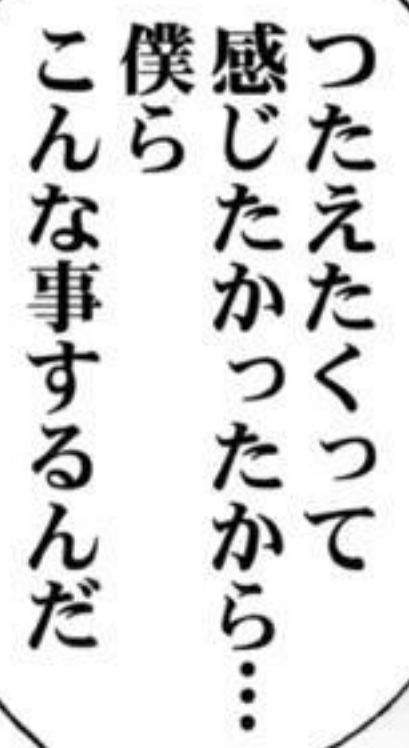 つたえたくって
感じたかったから…
僕ら
こんな事するんだ